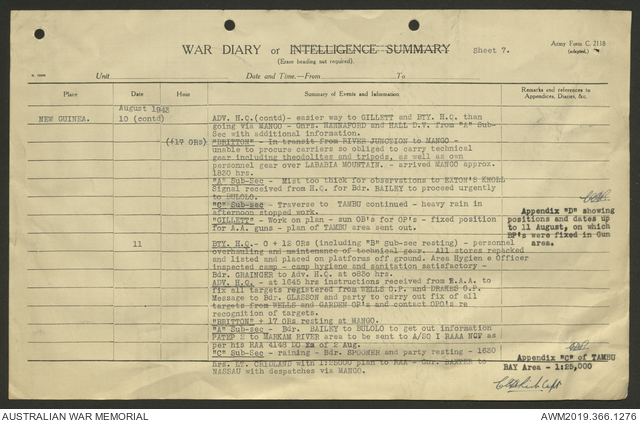 WAR DIARY or INTELLIGENCE SUMMARY
Sheet 7.
Army Form C. 2118
(adapted.)
(Erase heading not required).
Unit
Date and Time.—From
To
Place
Date
Hour
Summary of Events and Information
Remarks and references to
Appendices, Diaries, &c.
NEW GUINEA.
August 1943
10 (contd)
ADV. H.Q.(contd)- easier way to GILLETT and BTY. H.Q. than
going via MANGO - Gnrs. HANNAFORD and HALL D.V. from "A" Sub-
Sec with additional information.
(+17 ORs)
"BRITTON" - In transit from RIVER JUNCTION to MANGO -
unable to procure carriers so obliged to carry technical
gear including theodolites and tripods, as well as own
personnel gear over LABABIA MOUNTAIN. - arrived MANGO approx.
1820 hrs.
"A" Sub-Sec - Mist too thick for observations to EATON'S KNOLL
Signal received from H.Q. for Bdr. BAILEY to proceed urgently
to BULOLO.
"C" Sub-sec - Traverse to TAMBU continued - heavy rain in
afternoon stopped work.
"GILLETT" - Work on plan - sun OB's for OP's - fixed position
for A.A. guns - plan of TAMBU area sent out.
Appendix "D" showing
positions and dates up
to 11 August, on which
BP's were fixed in Gun
area.
11
BTY. H.Q. - 0 + 12 ORs (including "B" Sub-sec resting) - personnel
overhauling and maintenance of technical gear. All stores repacked
and listed and placed on platforms off ground. Area Hygiene Officer
inspected camp - camp hygiene and sanitation satisfactory -
Bdr. GRAINGER to ADV. H.Q. at 0830 hrs.
ADV. H.Q. - at 1645 hrs instructions received from R.A.A. to
fix all targets registered from WELLS O.P. and DRAKES O.P.
Message to Bdr. GLASSON and party to carry out fix of all
targets from WELLS and GARDEN OP's and contact OPO's re
recognition of targets.
"BRITTON" + 17 ORs resting at MANGO.
"A" Sub-Sec - Bdr. BAILEY to BULOLO to get out information
PATEP 2 to MARKAM RIVER area to be sent to A/SO I RAAA NGF as
per his RAA 4148 DO of 2 Aug.
"C" Sub-Sec - raining - Bdr. SPOONER and party resting - 1630
hrs. LT. CRIDLAND with 1:25000 plan to RAA - Gnr. BAXTER to
NASSAU with despatches via MANGO.
Appendix "C" of TAMBU
BAY Area - 1:25,000
Capt
AUSTRALIAN WAR MEMORIAL
AWM2019.366.1276